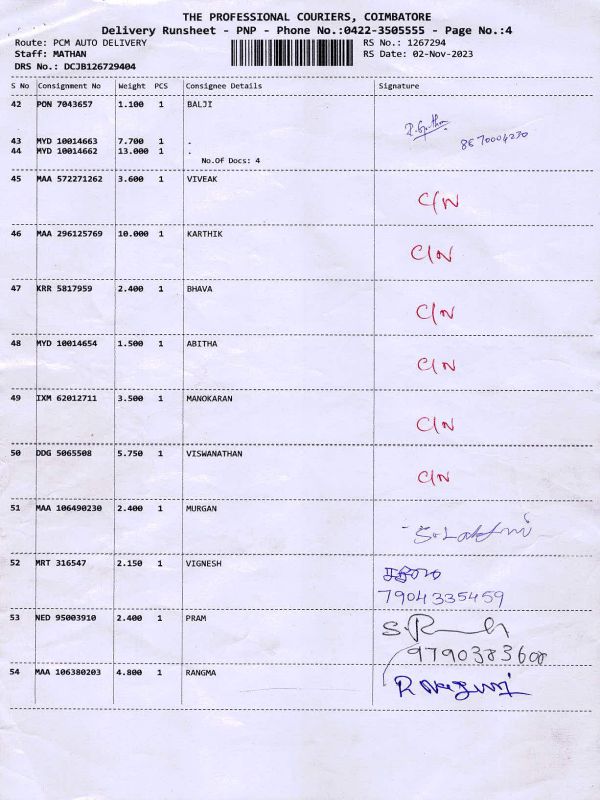 THE PROFESSIONAL COURIERS, COIMBATORE
Delivery Runsheet - PNP - Phone No.:0422-3505555 - Page No.:4
Route: PCM AUTO DELIVERY RS No.: 1267294
Staff: MATHAN RS Date: 02-Nov-2023
DRS No.: DCJB126729404
S No Consignment No Weight PCS Consignee Details Signature
42 PON 7043657 1.100 1 BALJI
8670004230
43 MYD 10014663 7.700 1 .
44 MYD 10014662 13.000 1 .
No.Of Docs: 4
45 MAA 572271262 3.600 1 VIVEAK
C/N
46 MAA 296125769 10.000 1 KARTHIK
C/N
47 KRR 5817959 2.400 1 BHAVA
C/N
48 MYD 10014654 1.500 1 ABITHA
C/N
49 IXM 62012711 3.500 1 MANOKARAN
C/N
50 DDG 5065508 5.750 1 VISWANATHAN
C/N
51 MAA 106490230 2.400 1 MURGAN
52 MRT 316547 2.150 1 VIGNESH
7904335459
53 NED 95003910 2.400 1 PRAM
9790383608
54 MAA 106380203 4.800 1 RANGMA